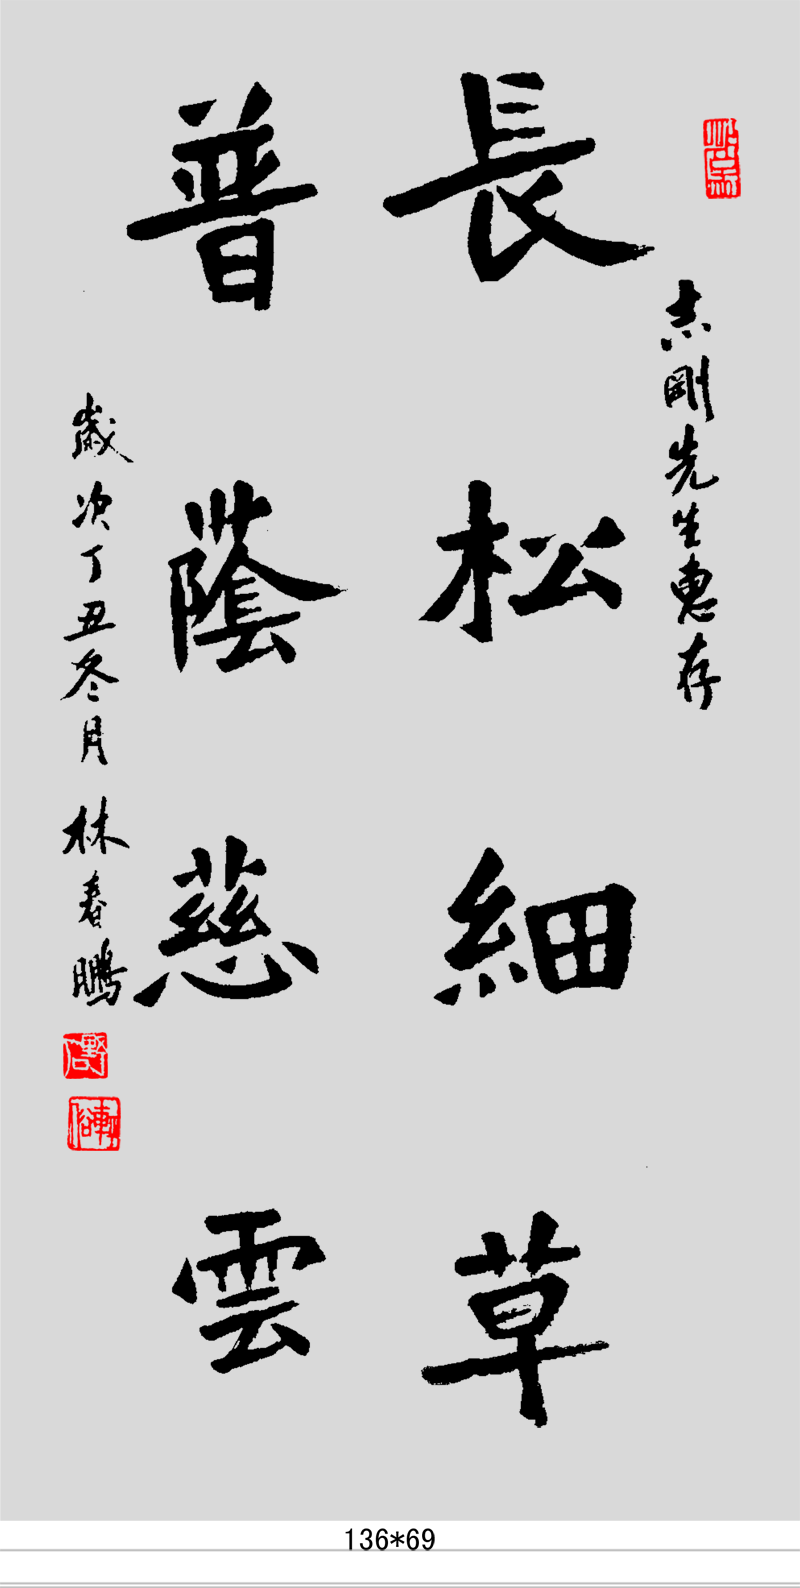 志剛先生惠存
長松細草
普蔭慈雲
歲次丁丑冬月 林春鵬
136*69